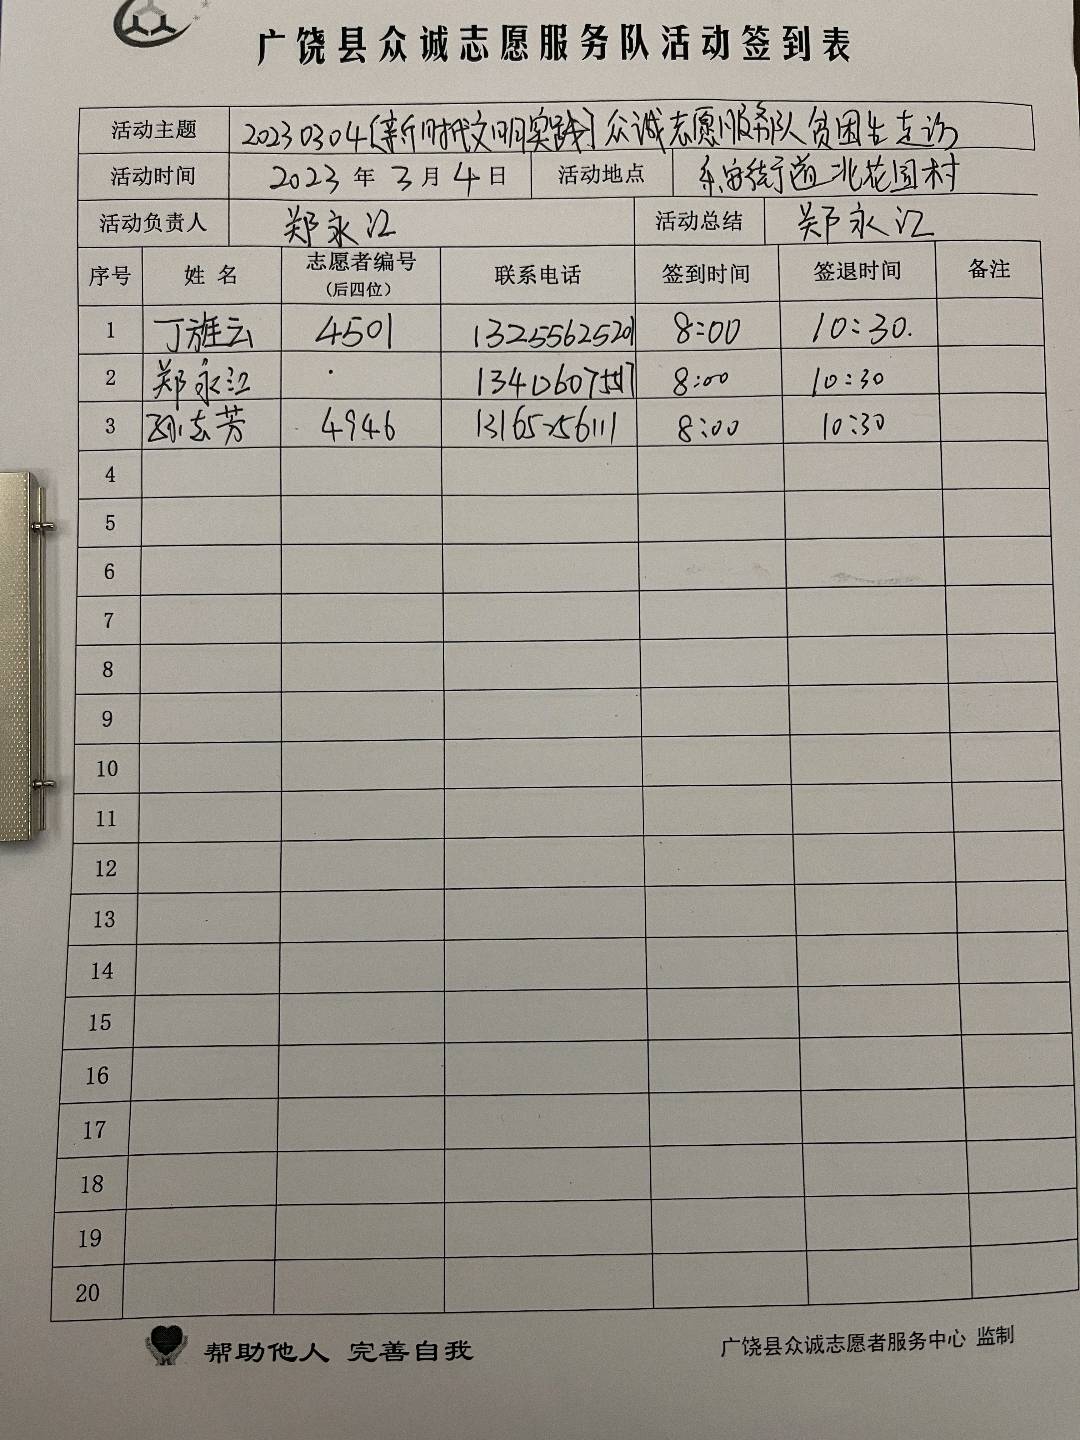 广饶县众诚志愿服务队活动签到表
活动主题 20230304[新时代文明实践]众诚志愿服务队贫困生走访
活动时间 2023年3月4日 活动地点 街道北花园村
活动负责人 郑永江 活动总结 郑永江
序号 姓名 志愿者编号(后四位) 联系电话 签到时间 签退时间 备注
1 丁旌云 4501 13255625201 8:00 10:30.
2 郑永江 · 8:00 10:30
3 芳 4946 13165256111 8:00 10:30
4
5
6
7
8
9
10
11
12
13
14
15
16
17
18
19
20
帮助他人 完善自我 广饶县众诚志愿者服务中心 监制